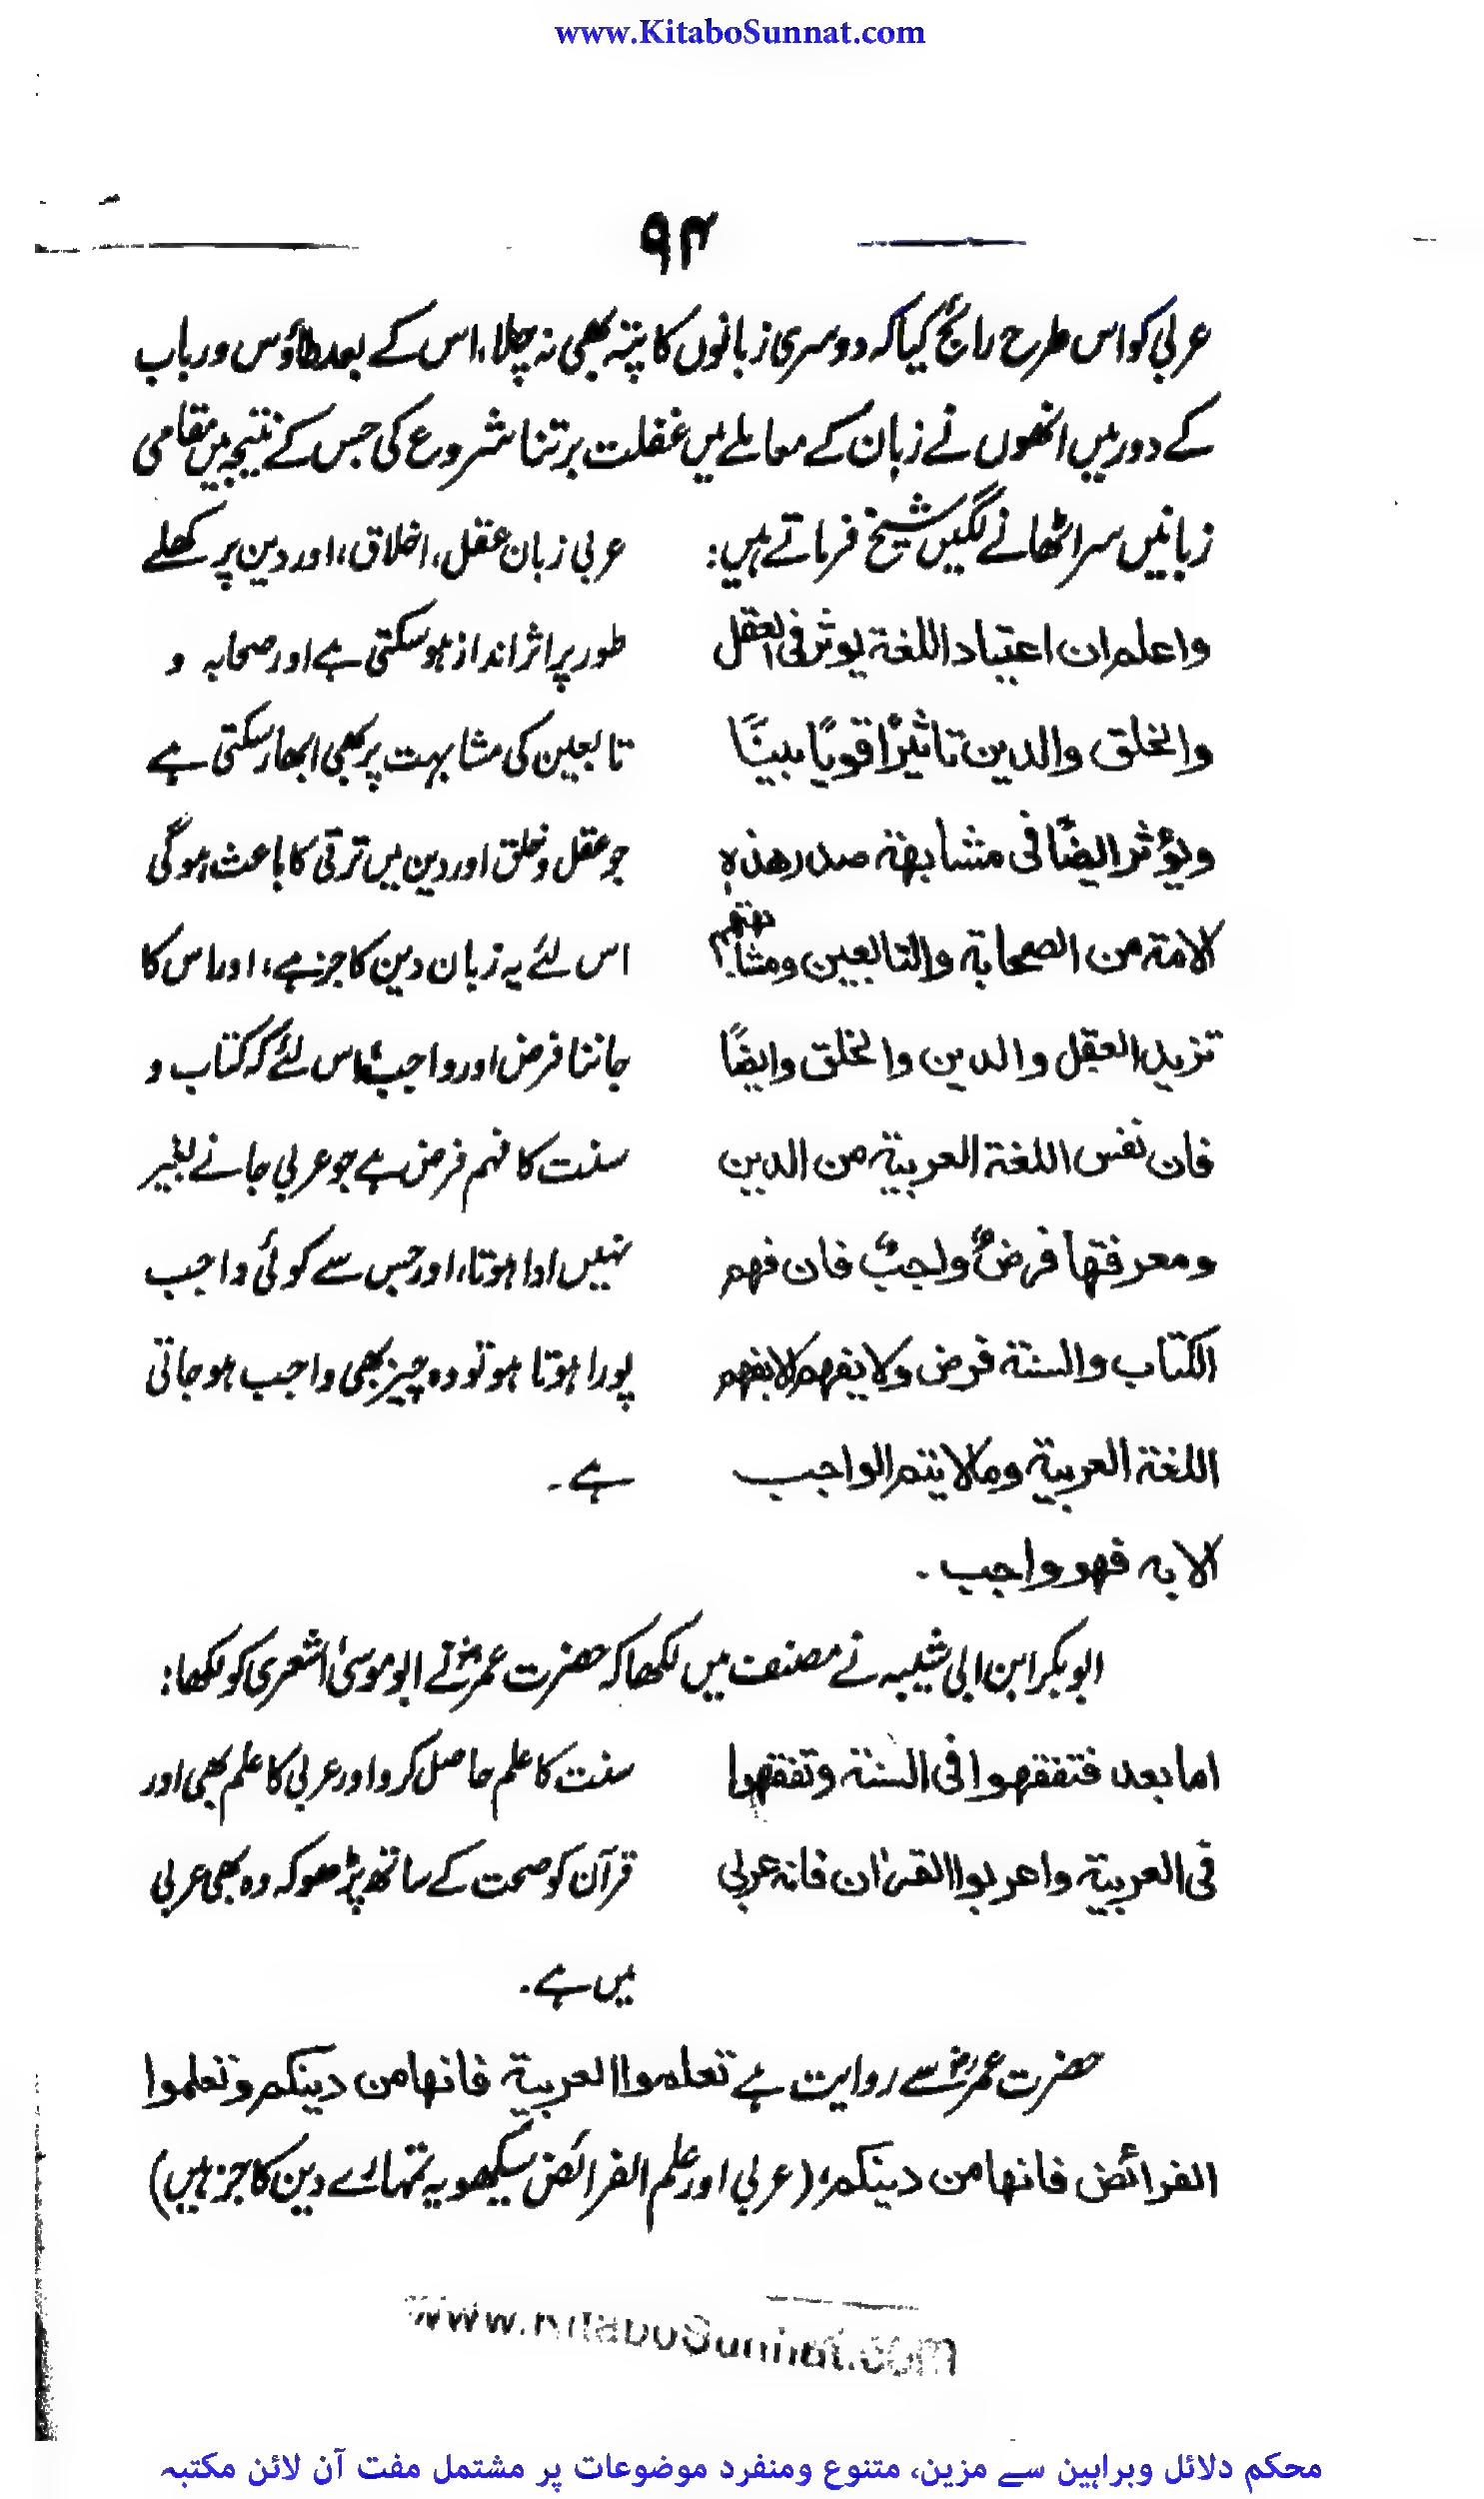 www.KitaboSunnat.com
۹۴
عربی کو اس طرح رائج کیا کہ دوسری زبانوں کا پتہ بھی نہ چلا، اس کے بعد طاؤس ورباب
کے دور میں انھوں نے زبان کے معاملے میں غفلت برتنا شروع کی جس کے نتیجہ میں مقامی
زبانیں سر اٹھانے لگیں شیخ فرماتے ہیں:
واعلم ان اعتیاد اللغة یوثر فی العقل
والخلق والدین تاثیرًا قویًا بینًا
ویؤثر ایضًا فی مشابهة صدر هذه
الامة من الصحابة والتابعین ومشابهتهم
تزید العقل والدین والخلق وایضًا
فان نفس اللغة العربیة من الدین
ومعرفتها فرضٌ واجبٌ فان فهم
الکتاب والسنة فرض ولا یفهم الا بفهم
اللغة العربیة وما لا یتم الواجب
الا به فهو واجب۔
عربی زبان عقل، اخلاق، اور دین پر کھلے
طور پر اثر انداز ہو سکتی ہے اور صحابہ و
تابعین کی مشابہت پر بھی ابھار سکتی ہے
جو عقل و خلق اور دین میں ترقی کا باعث ہوگی
اس لئے یہ زبان دین کا جز ہے، اور اس کا
جاننا فرض اور واجب ہے اس لئے کہ کتاب و
سنت کا فہم فرض ہے جو عربی جانے بغیر
نہیں ادا ہوتا، اور جس سے کوئی واجب
پورا ہوتا ہو تو وہ چیز بھی واجب ہو جاتی
ہے۔
ابوبکر ابن ابی شیبہ نے مصنف میں لکھا کہ حضرت عمرؓ نے ابو موسیٰ اشعری کو لکھا:
اما بعد فتفقهوا فی السنة وتفقهوا
فی العربیة واعربوا القرٰان فانه عربی
سنت کا علم حاصل کرو اور عربی کا علم بھی اور
قرآن کو صحت کے ساتھ پڑھو کہ وہ بھی عربی
میں ہے۔
حضرت عمرؓ سے روایت ہے تعلموا العربیة فانها من دینکم وتعلموا
الفرائض فانها من دینکم، (عربی اور علم الفرائض سیکھو یہ تمہارے دین کا جز ہیں)
www.KitaboSunnat.com
محکم دلائل وبراہین سے مزین، متنوع ومنفرد موضوعات پر مشتمل مفت آن لائن مکتبہ